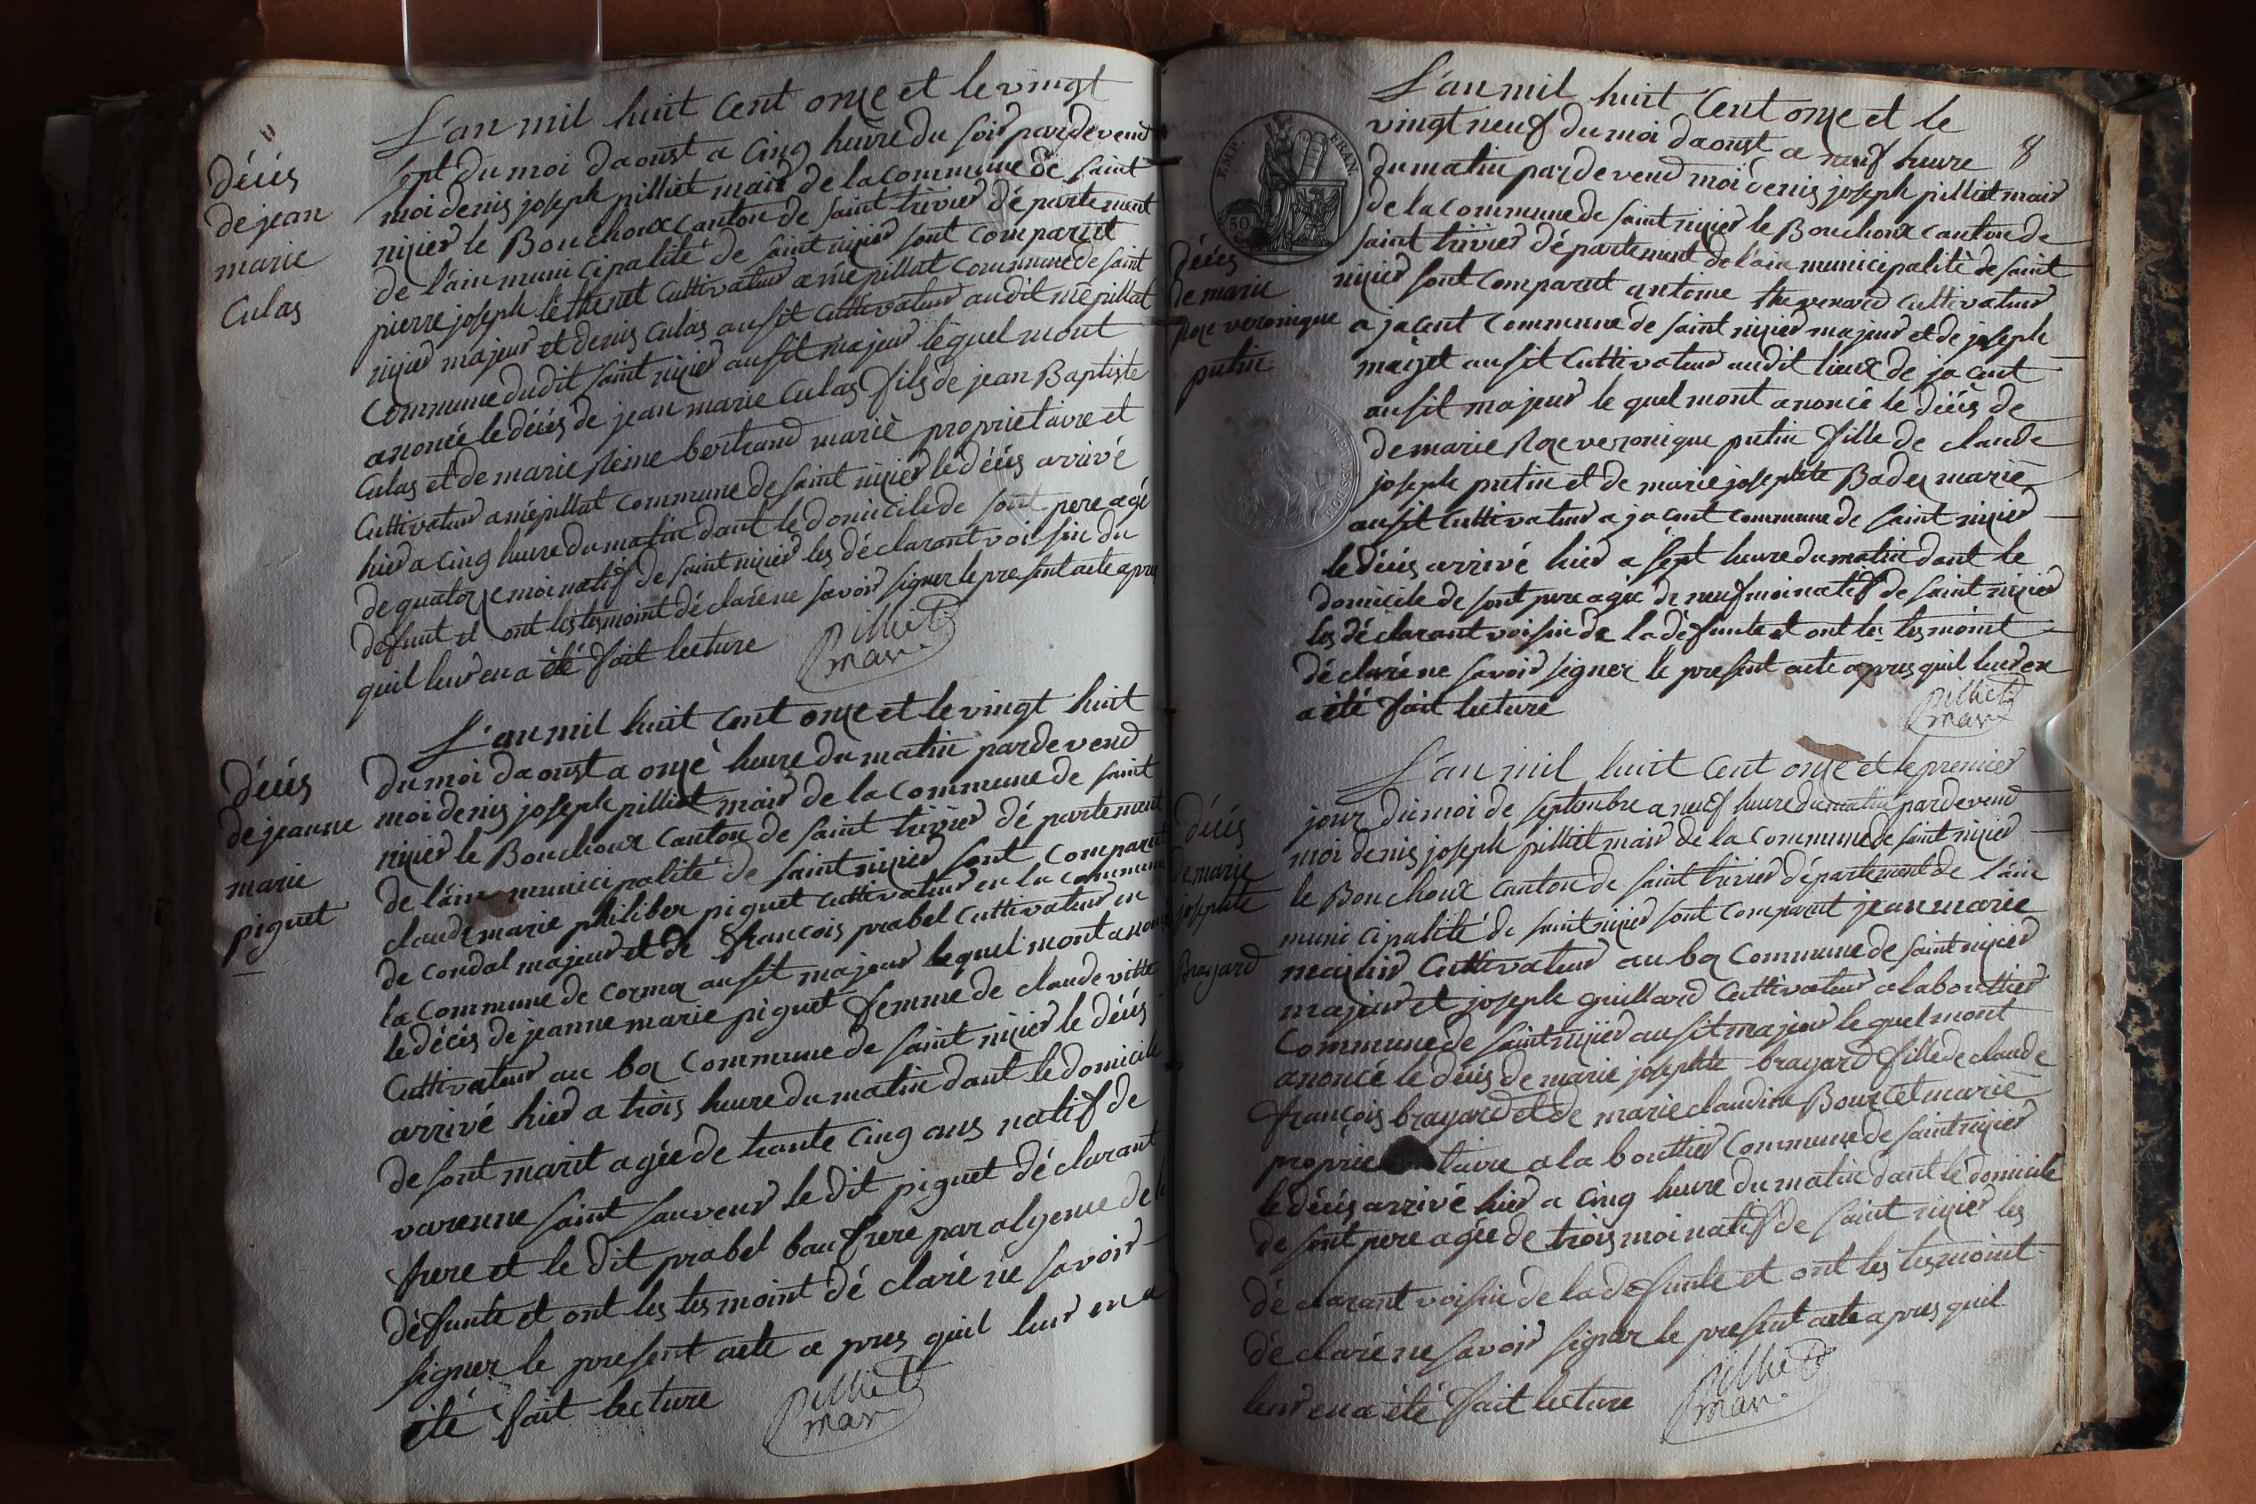 décés
de jean
marie
Culas
L'an mil huit cent onze et le vingt
sept du moi daoust a cinq heure du soir pardevend
moi denis joseph pilliet mair de la commune de saint
nizier le Bouchoux canton de saint trivier département
de l'ain municipalité de saint nizier sont comparut
pierre joseph théthenet cultivateur a mépillat commune de saint
nizier majeur et denis culas ausit cultivateur audit mépillat
commune dudit saint nizier ausit majeur lequel mont
anoncé le décés de jean marie culas fils de jean Baptiste
culas et de marie reine bertrand marié proprietaire et
cultivateur a mépillat commune de saint nizier le décés arrivé
hier a cinq heure du matin dant le domicile de sont pere agé
de quatorze moi natif de saint nizier les déclarant voisin du
défunt et ont les tesmoint déclaré ne savoir signer le present acte apres
quil leur en a été fait lecture
Pilliet
mair
décés
de jeanne
marie
piguet
L'an mil huit cent onze et le vingt huit
du moi daoust a onze heure du matin pardevend
moi denis joseph pilliet mair de la commune de saint
nizier le Bouchoux canton de saint trivier département
de l'ain municipalité de saint nizier sont comparut
claude marie philiber piguet cultivateur en la commune
de condal majeur et de françois prabel cultivateur en
la commune de cormoz ausit majeur lequel mont anoncé
le décés de jeanne marie piguet femme de claude vitte
cultivateur au boz commune de saint nizier le décés
arrivé hier a trois heure du matin dant le domicile
de sont marit agée de trante cinq ans natif de
varenne saint sauveur le dit piguet déclarant
frere et le dit prabel baufrere par alyence de la
défunte et ont les tesmoint déclaré ne savoir
signer le present acte a pres quil leur en a
été fait lecture
Pilliet
mair
8
EMP. FRAN.
50
décés
de marie
roze veronique
putin
L'an mil huit cent onze et le
vingt neuf du moi daoust a neuf heure
du matin pardevend moi denis joseph pilliet mair
de la commune de saint nizier le Bouchoux canton de
saint trivier département de l'ain municipalité de saint
nizier sont comparut antoine thevenard cultivateur
a jacent commune de saint nizier majeur et de joseph
ausit cultivateur audit lieux de jacent
ausit majeur le quel mont anoncé le décés de
de marie roze veronique putin fille de claude
joseph putin et de marie josephte Badez marié
ausit cultivateur a jacent commune de saint nizier
le décés arrivé hier a sept heure du matin dant le
domicile de sont pere agée de neuf moi natif de saint nizier
les déclarant voisin de la défunte et ont les tesmoint
déclaré ne savoir signer le present acte apres quil leur en
a été fait lecture
Pilliet
mair
décés
de marie
josephte
Brayard
L'an mil huit cent onze et le premier
jour du moi de septembre a neuf heure du matin pardevend
moi denis joseph pilliet mair de la commune de saint nizier
le Bouchoux canton de saint trivier département de l'ain
municipalité de saint nizier sont comparut jean marie
cultivateur au boz commune de saint nizier
majeur et joseph guillard cultivateur a la bouttier
commune de saint nizier ausit majeur le quel mont
anoncé le décés de marie josephte brayard fille de claude
françois brayard et de marie claudine Bourcet marié
propriétaire a la bouttier commune de saint nizier
le décés arrivé hier a cinq heure du matin dant le domicile
de sont pere agée de trois moi natif de saint nizier les
déclarant voisin de la défunte et ont les tesmoint
déclaré ne savoir signer le present acte apres quil
leur en a été fait lecture
Pilliet
mair